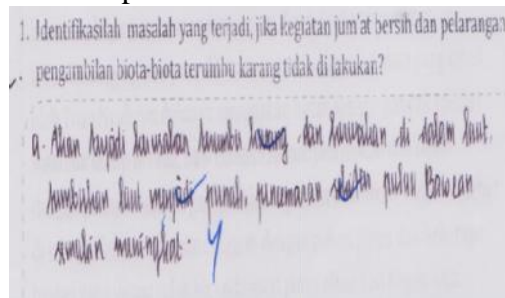 1. Identifikasilah masalah yang terjadi, jika kegiatan jum'at bersih dan pelarangan
pengambilan biota-biota terumbu karang tidak di lakukan?
a. Akan terjadi kerusakan terumbu karang dan kerusakan di dalam laut.
tumbuhan laut menjadi punah. pencemaran sekitar pulau Bawean
semakin meningkat. 4